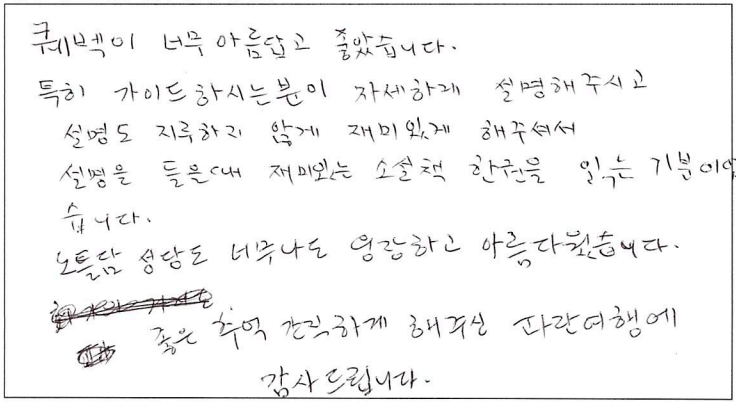 퀘벡이 너무 아름답고 좋았습니다.
특히 가이드하시는분이 자세하게 설명해주시고
설명도 지루하지 않게 재미있게 해주셔서
설명을 들을때 재미있는 소설책 한권을 읽는 기분이었
습니다.
노틀담 성당도 너무나도 웅장하고 아름다웠습니다.
좋은 추억 간직하게 해주신 파란여행에
감사드립니다.